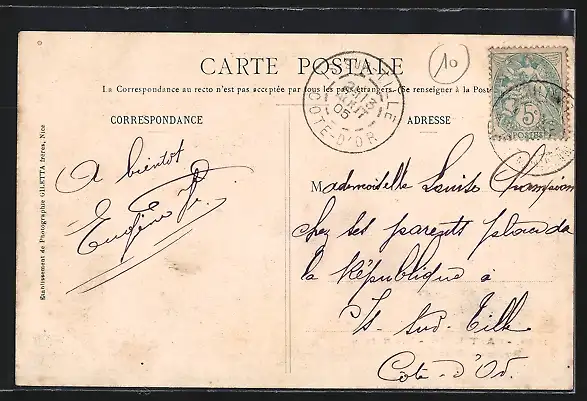 CARTE POSTALE
10
La Correspondance au recto n'est pas acceptée par tous les pays étrangers. (Se renseigner à la Poste
CORRESPONDANCE
ADRESSE
CÔTE-D'OR
05
5
POSTES
A bientôt
Eugène
Mademoiselle Louise Champion
chez ses parents place de
la République à
Is-sur-Tille
Côte-d'Or.
Etablissement de Photographie GILETTA frères, Nice